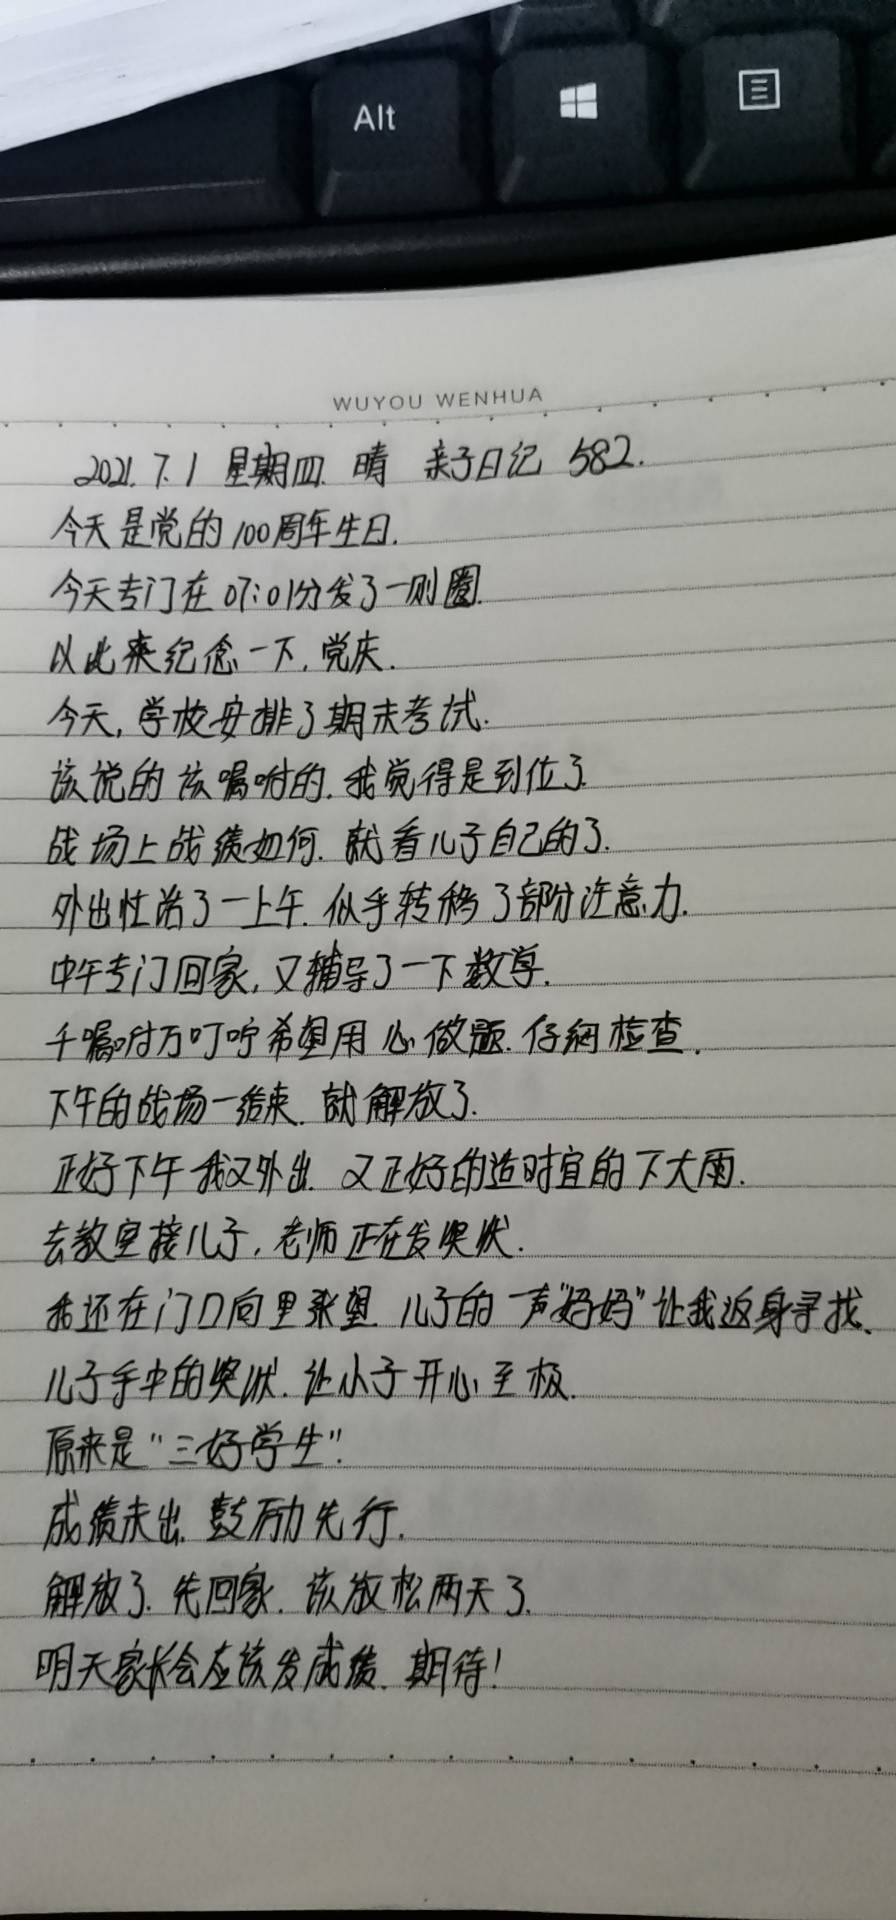 Alt
WUYOU WENHUA
2021.7.1 星期四. 晴 亲子日记 582.
今天是党的100周年生日.
今天专门在07:01分发了一则圈.
以此来纪念一下,党庆.
今天,学校安排了期末考试.
该说的该嘱咐的.我觉得是到位了.
战场上战绩如何.就看儿子自己的了.
外出忙活了一上午.似乎转移了部分注意力.
中午专门回家,又辅导了一下数学.
千嘱咐万叮咛希望用心做题.仔细检查.
下午的战场一结束.就解放了.
正好下午我又外出.又正好的适时宜的下大雨.
去教室接儿子,老师正在发奖状.
我还在门口向里张望.儿子的一声“妈妈”让我返身寻找.
儿子手中的奖状.让小子开心至极.
原来是“三好学生”.
成绩未出.鼓励先行.
解放了.先回家.该放松两天了.
明天家长会应该发成绩.期待!